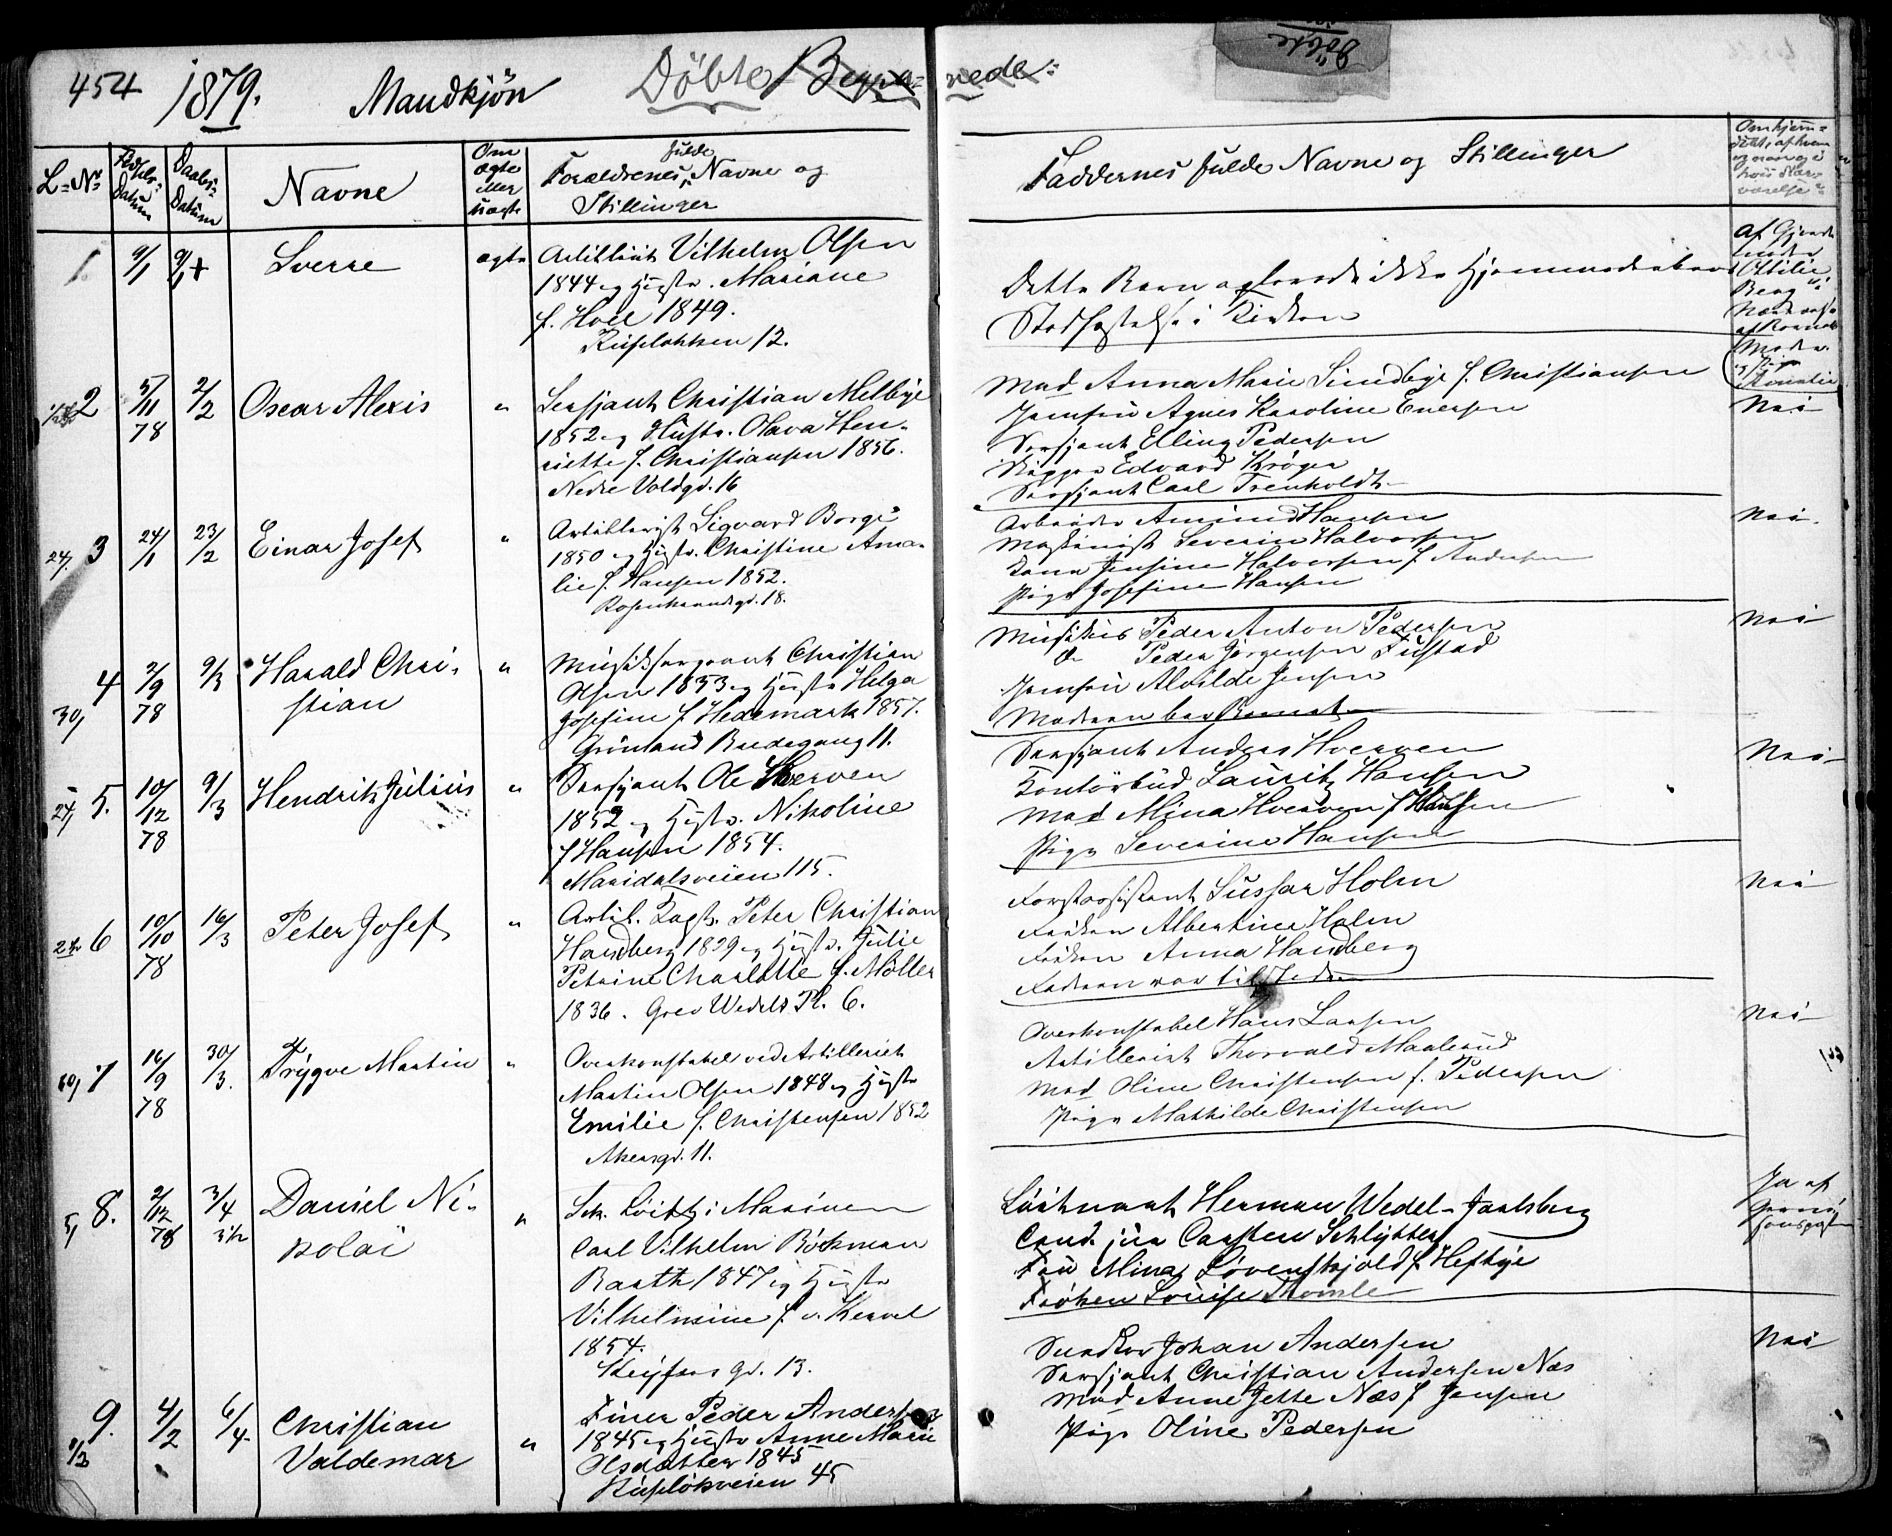 454 1879. Mandkjön Döbte Begra= vede:
Döbte
L=No
Fødsels= Datum
Daabs= Datum
Navne
Om ægte eller uægte
Forældrenes fulde Navne og
Stillinger
Faddernes fulde Navne og Stillinger
Om hjemme=
døbt, af hvem
og naar og i
hvis Nær=
værelse
1. 9/1 9/1 + Sverre ægte Artillerist Vilhelm Olsen
1844 og Hustr. Mariane
f. Holl 1849.
Ruseløkken 12.
Dette Barn opleved ikke Hjemmedaabens
Stadfæstelse i Kirken
af Gjorde
moder
Ottilie
Berg i
Nærværelse
2 5/11 78 2/2 Oscar Alexis " Sersjant Christian Melbye
1852 og Hustr. Olava Hen=
riette f. Christiansen 1856.
Nedre Voldgd. 16
Mad Anna Marie Sundbye f. Christiansen
Jomfru Agnes Karoline Enersen
Sersjant Elling Pedersen
Skipper Edvard Krøger
Sersjant Carl Frenholdt
Nei
24/ 3 24/1 23/2 Einar Josef " Artillerist Sigvard Borge
1850 og Hustr. Christine Ama=
lie f. Hansen 1852.
Rosenkrandsgd. 18.
Arbeider Amund Hansen
Maskinist Severin Halvorsen
Kone Jensine Halvorsen f. Andersen
Pige Josefine Hansen
Nei
30/ 4 2/9 78 9/3 Harald Chri=
stian
" Musiksergeant Christian
Olsen 1853 og Hustr Helga
Josefine f. Hedemark 1857.
Grönland Brudegang 11.
Musikus Peder Anton Pedersen
do Peder Jørgensen Fustad
Jomfru Alvilde Jensen
Moderen bar Barnet
Nei
24/ 5. 10/12 78 9/3 Hendrik Julius " Sersjant Ole Hverven
1852 og Hustr. Nikoline
f Hansen 1854.
Maridalsveien 115.
Sersjant Anders Hverven
Kontörbud Lauritz Hansen
Mad Mina Hverven f Hansen
Pige Severine Hansen
Nei
6 10/10 78 16/3 Peter Josef " Artil. Kapt. Peter Christian
Handberg 1839 og Hustr. Julie
Petrine Charlotte f. Möller
1836. Grev Wedels Pl. 6.
Forstassistent Gustav Holm
Frøken Albertine Holm
Frøken Anna Handberg
Faderen var tilstede
Nei
7 16/9 78 30/3. Trygve Martin " Overkonstabel ved Artilleriet
Martin Olsen 1848 og Hustr
Emilie f. Christensen 1852
Akersgd. 11.
Overkonstabel Hans Larsen
Artillerist Thorvald Maalerud
Mad Oline Christensen f. Pedersen
Pige Mathilde Christensen
Nei
5/ 8. 2/12 78 3/4 Daniel Ni=
kolai
" Sek. Löitn. i Marinen
Carl Vilhelm Böckman
Barth 1847 og Hustr
Vilhelmine f. v. Krevel
1854.
Keysers gd. 13.
Löitnant Herman Wedel-Jarlsberg
Cand jur Carsten Schlytter
Fru Mina Lövenskjold f. Heftye
Frøken Louise Thomle
Ja af
Garni=
sonspr
1/3 9. 4/2 6/4. Christian
Valdemar
" Furer Peder Andersen
1845 og Hustr Anne Marie
Olsdatter 1845
Ruseløkveien 45
Snedker Johan Andersen
Sersjant Christian Andersen Næs
Mad Anne Jette Næs f. Jensen
Pige Oline Pedersen
Nei